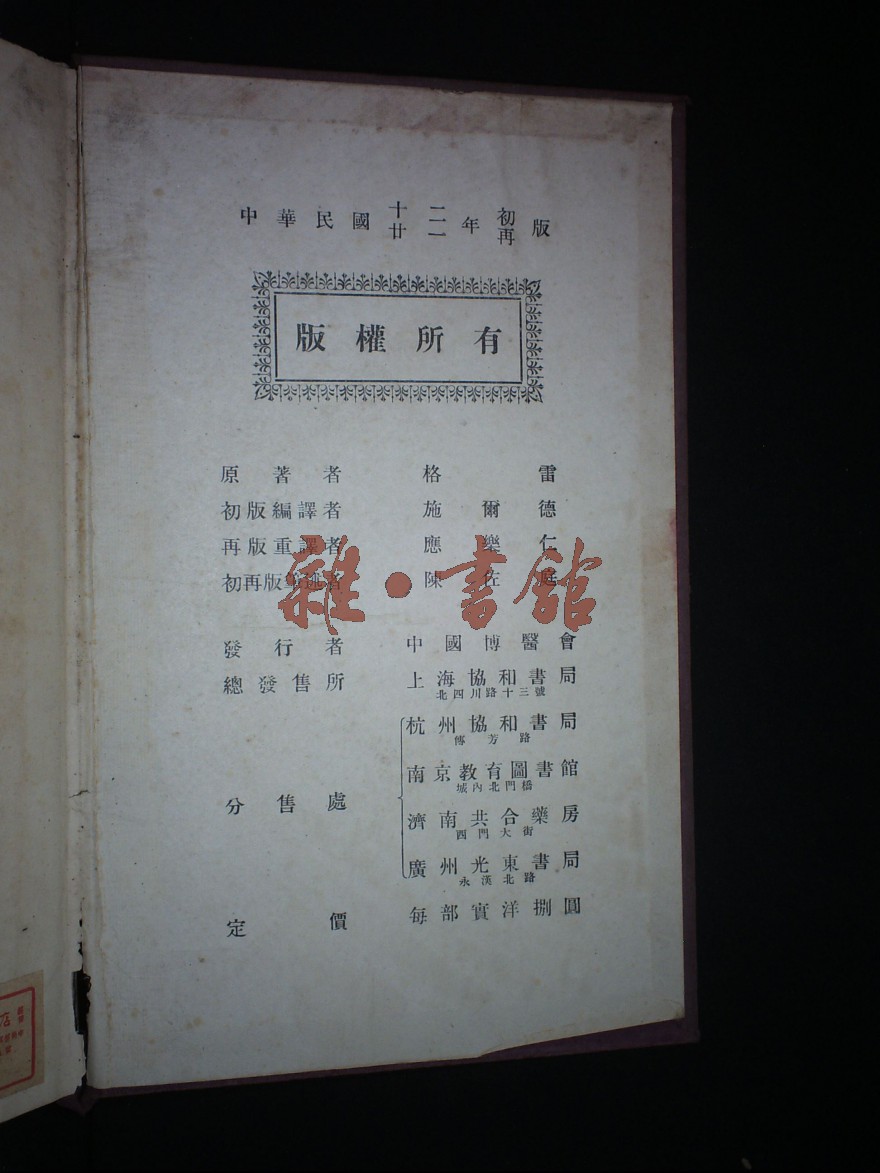 中華民國十二年初版
廿一再
版權所有
原著者 格雷
初版編譯者 施爾德
再版重譯者 應樂仁
初再版筆述者 陳佐庭
雜·書館
發行者 中國博醫會
總發售所 上海協和書局
北四川路十三號
杭州協和書局
傅芳路
南京教育圖書館
城內北門橋
分售處
濟南共合藥房
西門大街
廣州光東書局
永漢北路
定價 每部實洋捌圓
店